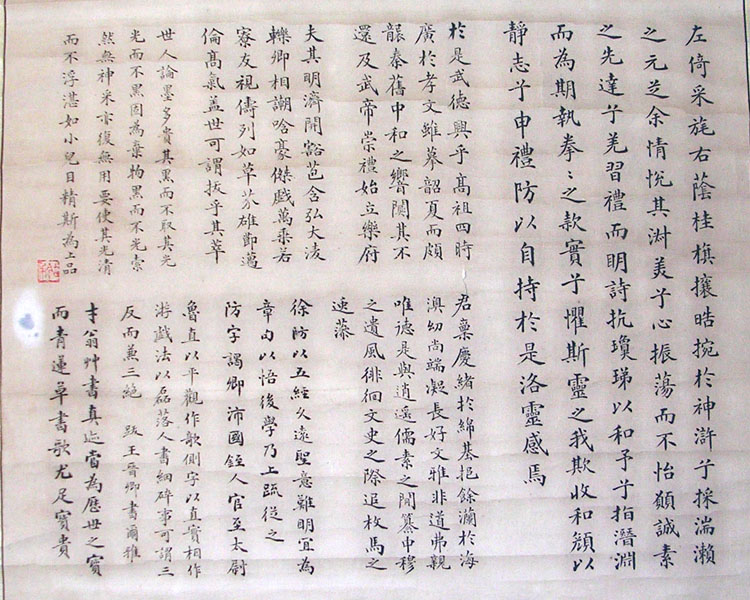 左倚采旄右蔭桂旗攘皓捥於神滸兮採湍瀨
之元芝余情悅其淑美兮心振蕩而不怡願誠素
之先達兮羌習禮而明詩抗瓊珶以和予兮指潛淵
而為期執拳〻之款實兮懼斯靈之我欺收和顏以
靜志兮申禮防以自持於是洛靈感焉
於是武德興乎高祖四時
廣於孝文雖摹韶夏而頗
襲秦舊中和之響闃其不
還及武帝崇禮始立樂府
夫其明濟開豁苞含弘大淩
轢卿相謿哈豪傑戲萬乘若
寮友視儔列如草芥雄節邁
倫高氣蓋世可謂拔乎其萃
世人論墨多貴其黑而不取其光
光而不黑固為棄物黑而不光索
然無神采亦復無用要使其光清
而不浮湛如小兒目精斯為上品
君稟慶緒於綿基挹餘瀾於海
澳幼尚端凝長好文雅非道弗親
唯德是與逍遙儒素之間纂申穆
之遺風徘徊文史之際追枚馬之
速藻
徐防以五經久遠聖意難明宜為
章句以悟後學乃上疏從之
防字謁卿沛國銍人官至太尉
魯直以平觀作欹側字以真實相作
游戲法以磊落人書細碎事可謂三
反而兼三絕 跋王晉卿書爾雅
才翁艸書真迹當為歷世之寶
而青蓮草書歌尤足寶貴